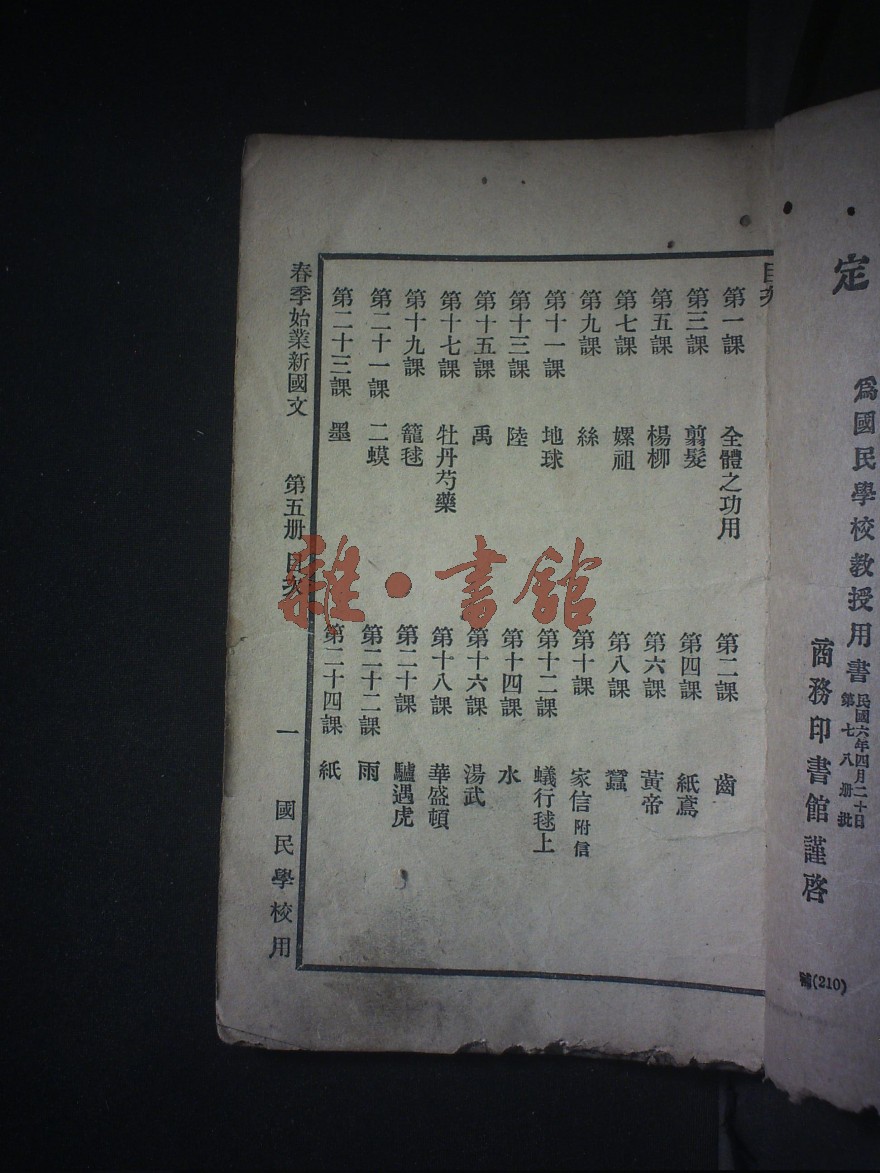 定
爲國民學校教授用書
民國六年四月二十日
第七八册批
商務印書館謹啓
補(210)
目次
第一課 全體之功用
第二課 齒
第三課 翦髮
第四課 紙鳶
第五課 楊柳
第六課 黃帝
第七課 嫘祖
第八課 蠶
第九課 絲
第十課 家信附信
第十一課 地球
第十二課 蟻行毬上
第十三課 陸
第十四課 水
第十五課 禹
第十六課 湯武
第十七課 牡丹芍藥
第十八課 華盛頓
第十九課 籠毬
第二十課 驢遇虎
第二十一課 二蟆
第二十二課 雨
第二十三課 墨
第二十四課 紙
春季始業新國文 第五册 目次 一 國民學校用
雜·書館